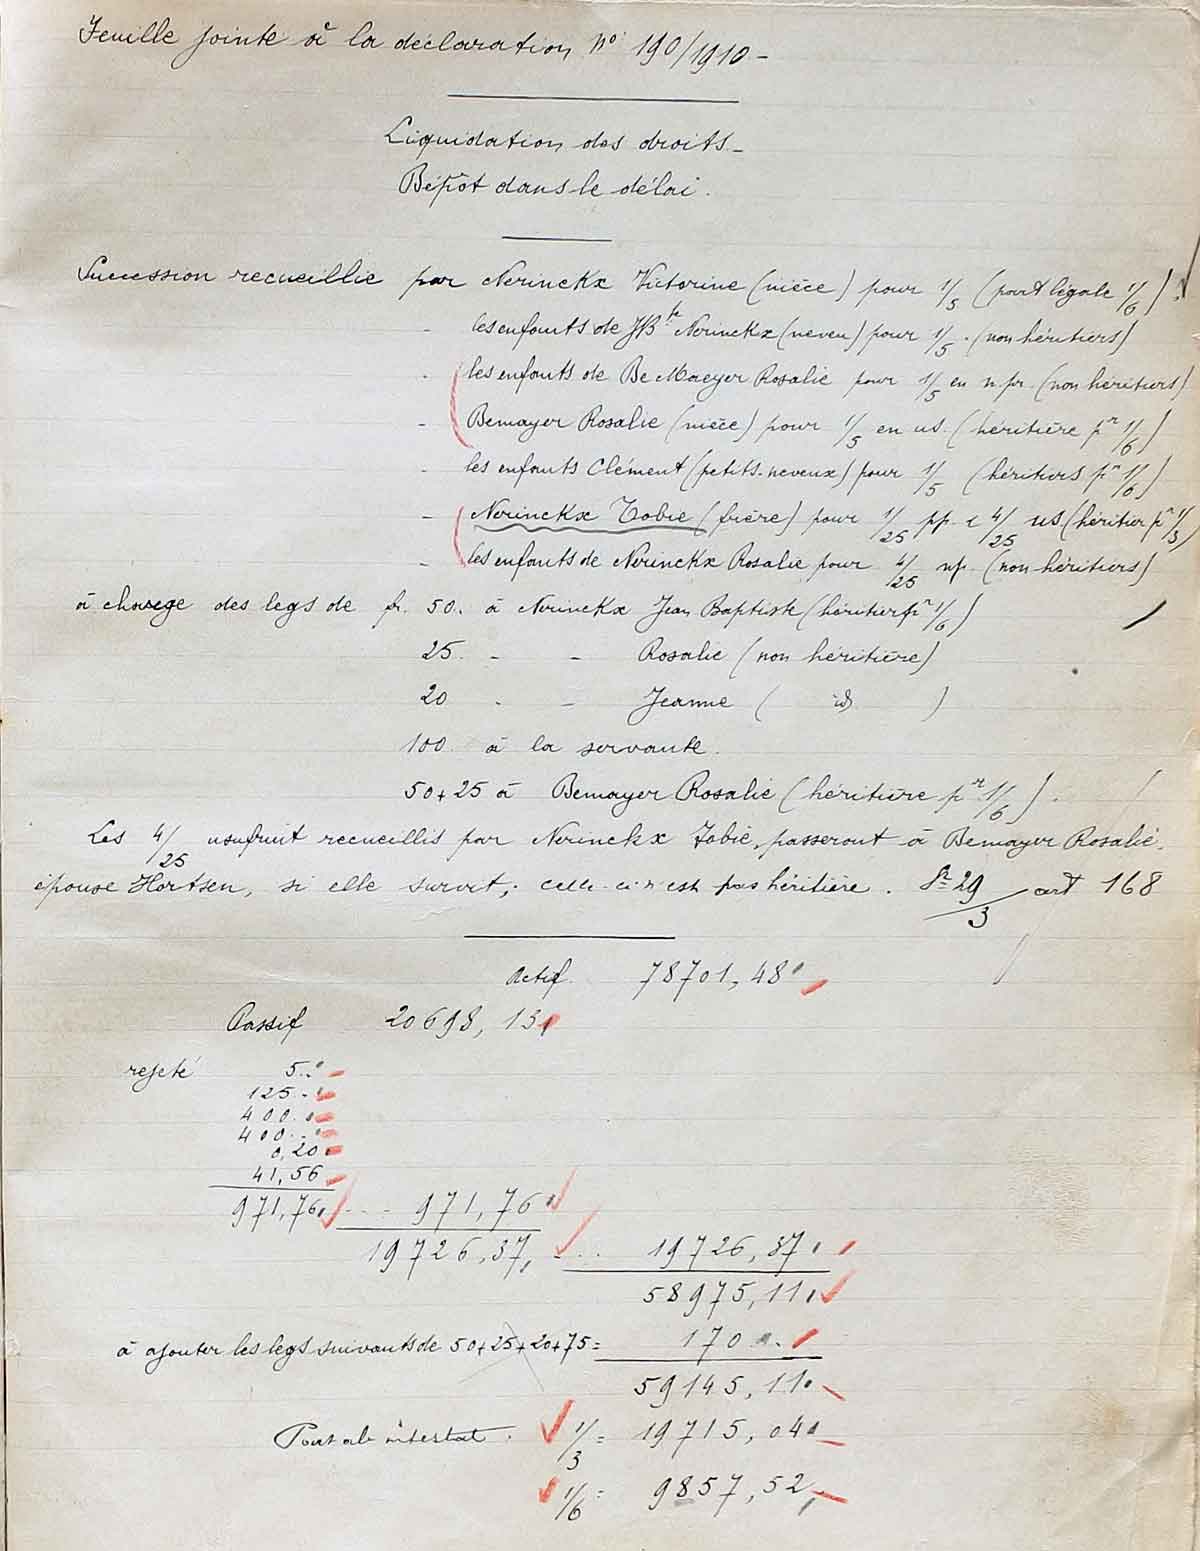 Feuille jointe à la déclaration no 190/1910 -
Liquidation des droits -
Dépôt dans le délai.
Succession recueillie par Nerinckx Victorine (nièce) pour 1/5 (part légale 1/6)
- les enfants de JBte Nerinckx (neveu) pour 1/5. (non héritiers)
- les enfants de De Maeyer Rosalie pour 1/5 en n. pr. (non héritiers)
- Demayer Rosalie (nièce) pour 1/5 en us. (héritière pr 1/6)
- les enfants Clément (petits-neveux) pour 1/5 (héritiers pr 1/6)
- Nerinckx Tobie (frère) pour 1/25 pp. & 4/25 us (héritier pr 1/3)
- les enfants de Nerinckx Rosalie pour 4/25 np. (non héritiers)
à charge des legs de fr. 50. à Nerinckx Jean Baptiste (héritier pr 1/6)
25. - - Rosalie (non héritière)
20 - - Jeanne ( id )
100 à la servante.
50 + 25 à Demayer Rosalie (héritière pr 1/6).
Les 4/25 usufruit recueillis par Nerinckx Tobie, passeront à Demayer Rosalie,
épouse Hortsen, si elle survit; celle-ci n'est pas héritière. Sr 29/3 art 168
Actif 78701,48
Passif 20698,13
rejeté 5..
125..
400..
400..
0,20
41,56
971,76 ... 971,76
19726,37 ... 19726,37
58975,11
à ajouter les legs suivants de 50+25+20+75 = 170..
59145,11
Part ab intestat. 1/3 = 19715,04
1/6 = 9857,52